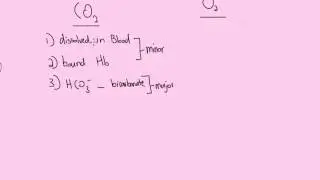 CO2
O2
1) dissolved in Blood
minor
2) bound Hb
3) HCO3- - bicarbonate
major